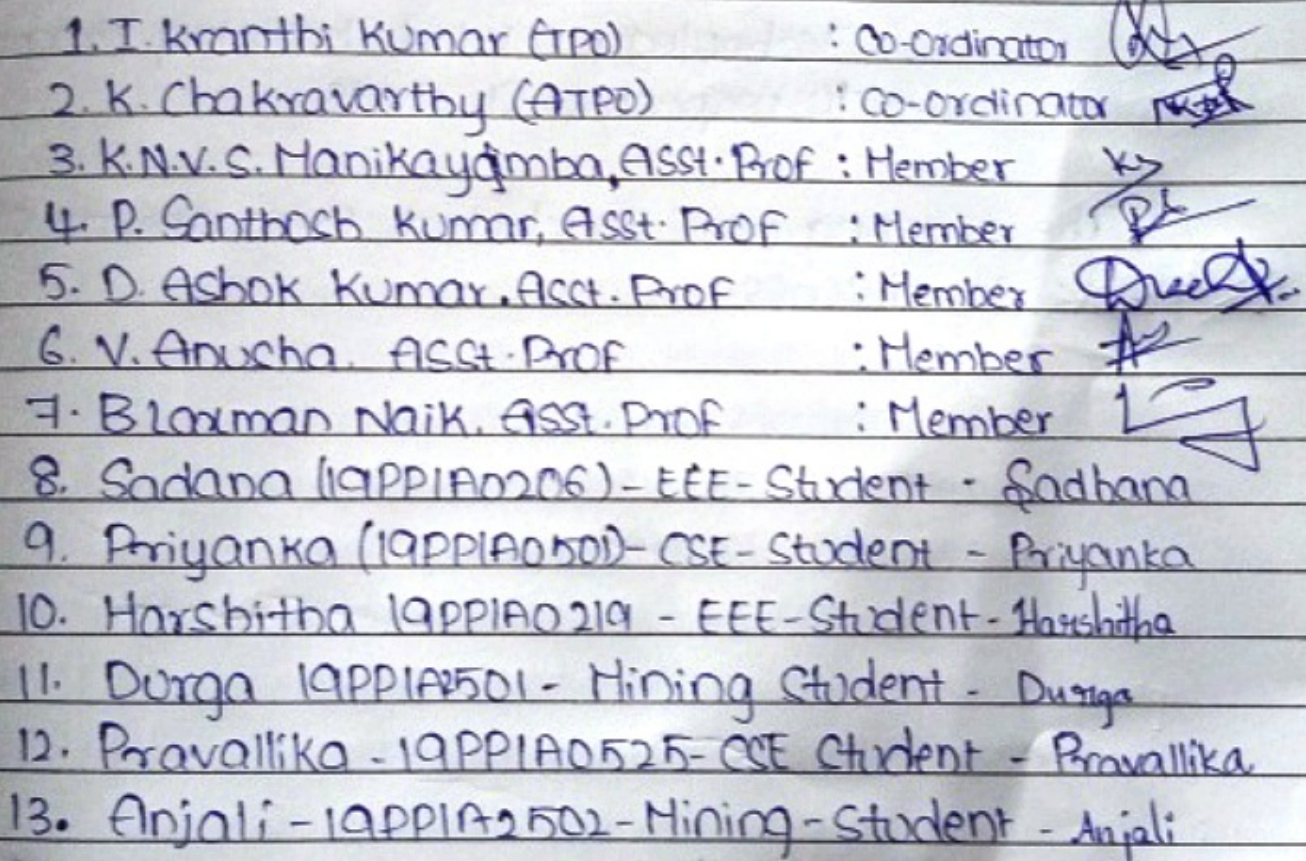 1. I. Kranthi Kumar (TPO) : Co-Ordinator
2. K. Chakravarthy (ATPO) : Co-ordinator
3. K.N.V.S. Manikayamba, Asst. Prof : Member
4. P. Santhosh Kumar, Asst. Prof : Member
5. D. Ashok Kumar. Asst. Prof : Member
6. V. Anusha. Asst. Prof : Member
7. B Laxman Naik. Asst. Prof : Member
8. Sadana (19PP1A0206) - EEE - Student - Sadhana
9. Priyanka (19PP1A0501) - CSE - Student - Priyanka
10. Harshitha 19PP1A0219 - EEE - Student - Harshitha
11. Durga 19PP1A2501 - Mining Student - Durga
12. Pravallika - 19PP1A0525 - CSE Student - Pravallika
13. Anjali - 19PP1A2502 - Mining - Student - Anjali